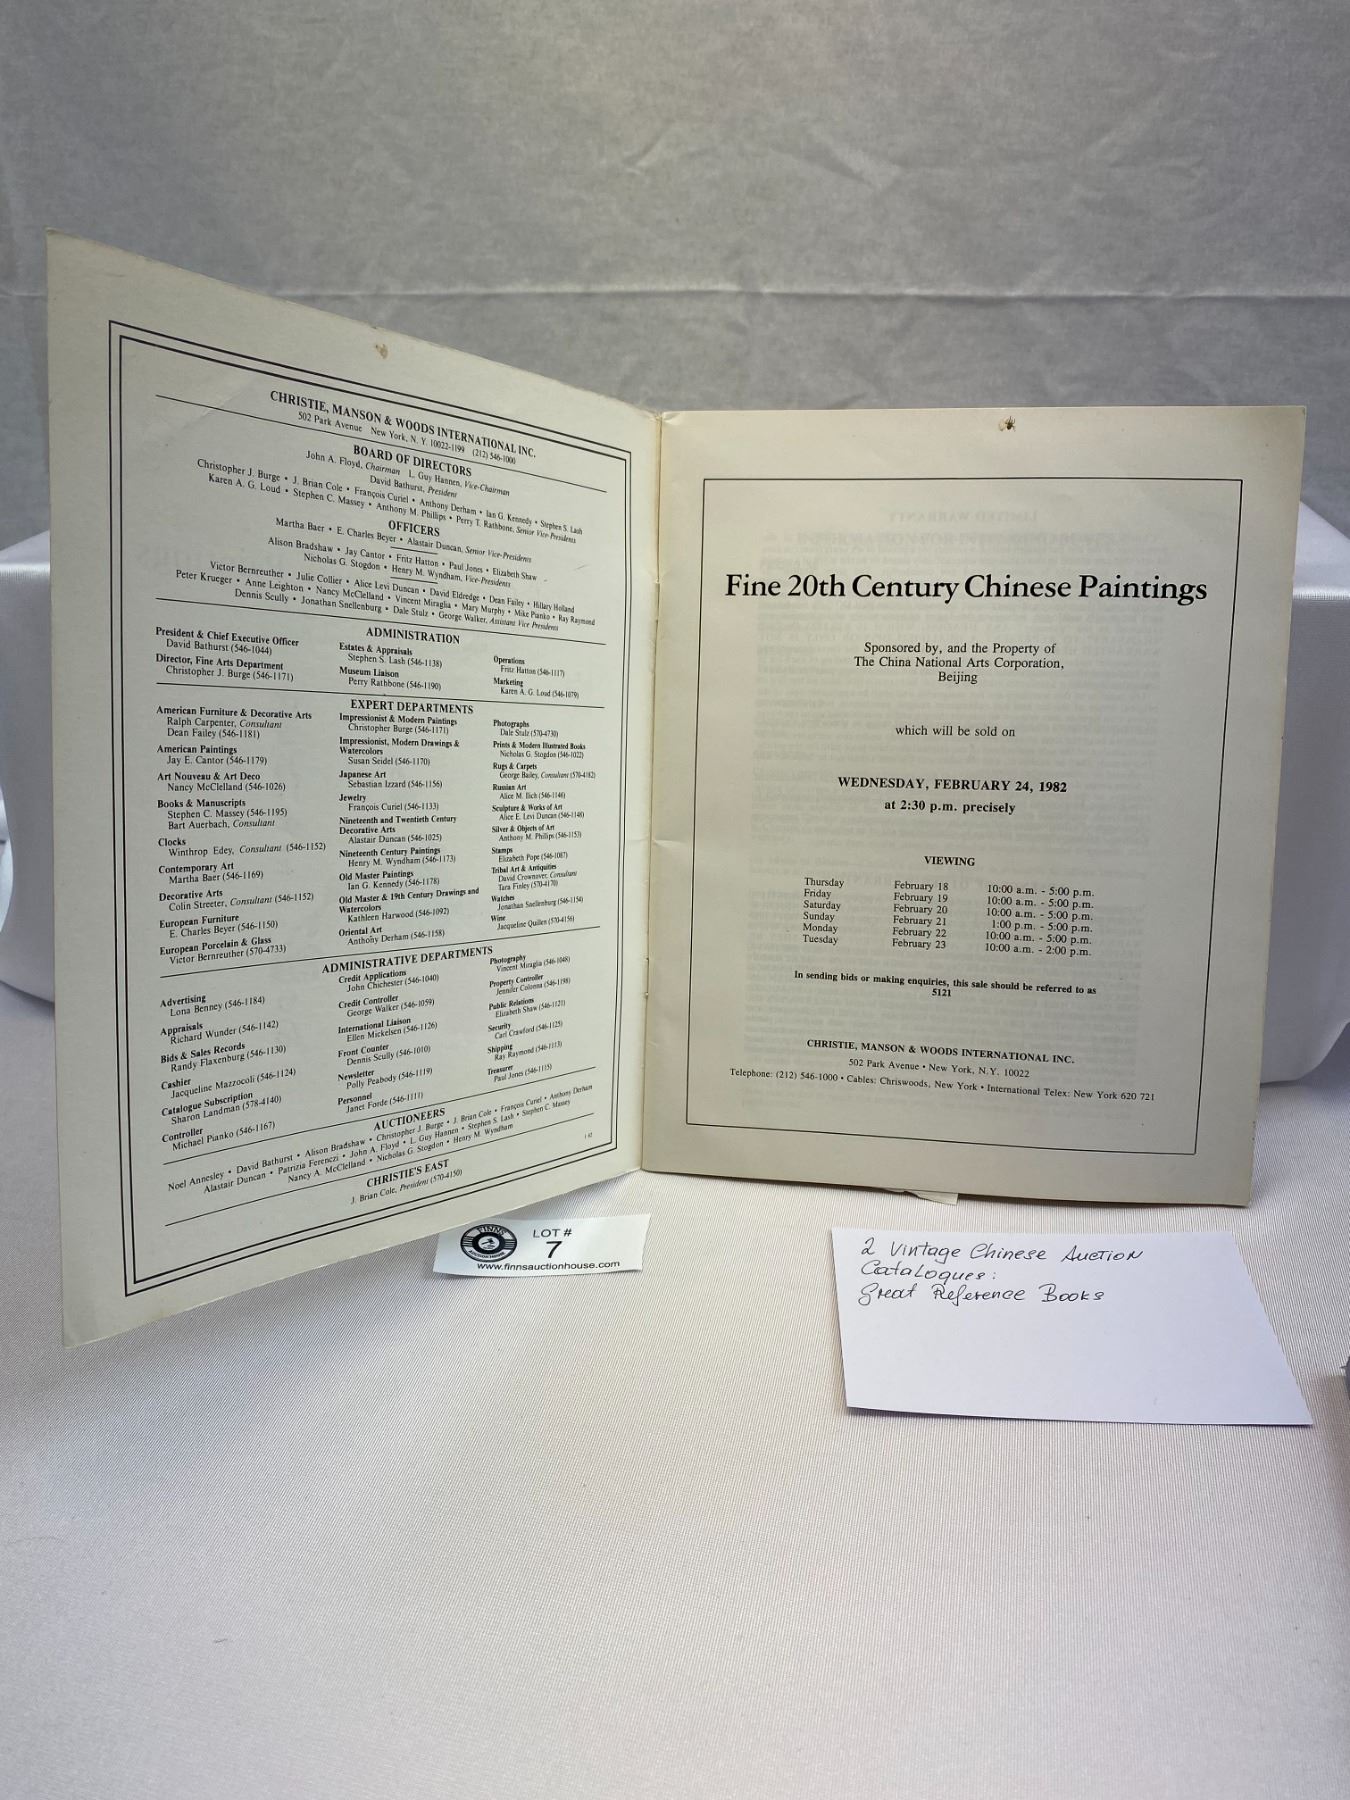 CHRISTIE, MANSON & WOODS INTERNATIONAL INC.
502 Park Avenue New York, N. Y. 10022-1199 (212) 546-1000
BOARD OF DIRECTORS
John A. Floyd, Chairman L. Guy Hannen, Vice-Chairman
David Bathurst, President
Christopher J. Burge • J. Brian Cole • François Curiel • Anthony Derham • Ian G. Kennedy • Stephen S. Lash
Karen A. G. Loud • Stephen C. Massey • Anthony M. Phillips • Perry T. Rathbone, Senior Vice-Presidents
OFFICERS
Martha Baer • E. Charles Beyer • Alastair Duncan, Senior Vice-Presidents
Alison Bradshaw • Jay Cantor • Fritz Hatton • Paul Jones • Elizabeth Shaw
Nicholas G. Stogdon • Henry M. Wyndham, Vice-Presidents
Victor Bernreuther • Julie Collier • Alice Levi Duncan • David Eldredge • Dean Failey • Hillary Holland
Peter Krueger • Anne Leighton • Nancy McClelland • Vincent Miraglia • Mary Murphy • Mike Pianko • Ray Raymond
Dennis Scully • Jonathan Snellenburg • Dale Stulz • George Walker, Assistant Vice Presidents
ADMINISTRATION
President & Chief Executive Officer
David Bathurst (546-1044)
Director, Fine Arts Department
Christopher J. Burge (546-1171)
Estates & Appraisals
Stephen S. Lash (546-1138)
Museum Liaison
Perry Rathbone (546-1190)
Operations
Fritz Hatton (546-1117)
Marketing
Karen A. G. Loud (546-1079)
EXPERT DEPARTMENTS
American Furniture & Decorative Arts
Ralph Carpenter, Consultant
Dean Failey (546-1181)
American Paintings
Jay E. Cantor (546-1179)
Art Nouveau & Art Deco
Nancy McClelland (546-1026)
Books & Manuscripts
Stephen C. Massey (546-1195)
Bart Auerbach, Consultant
Clocks
Winthrop Edey, Consultant (546-1152)
Contemporary Art
Martha Baer (546-1169)
Decorative Arts
Colin Streeter, Consultant (546-1152)
European Furniture
E. Charles Beyer (546-1150)
European Porcelain & Glass
Victor Bernreuther (570-4733)
Impressionist & Modern Paintings
Christopher Burge (546-1171)
Impressionist, Modern Drawings &
Watercolors
Susan Seidel (546-1170)
Japanese Art
Sebastian Izzard (546-1156)
Jewelry
François Curiel (546-1133)
Nineteenth and Twentieth Century
Decorative Arts
Alastair Duncan (546-1025)
Nineteenth Century Paintings
Henry M. Wyndham (546-1173)
Old Master Paintings
Ian G. Kennedy (546-1178)
Old Master & 19th Century Drawings and
Watercolors
Kathleen Harwood (546-1092)
Oriental Art
Anthony Derham (546-1158)
Photographs
Dale Stulz (570-4730)
Prints & Modern Illustrated Books
Nicholas G. Stogdon (546-1022)
Rugs & Carpets
George Bailey, Consultant (570-4182)
Russian Art
Alice M. Ilich (546-1146)
Sculpture & Works of Art
Alice E. Levi Duncan (546-1148)
Silver & Objects of Art
Anthony M. Phillips (546-1153)
Stamps
Elizabeth Pope (546-1087)
Tribal Art & Antiquities
David Crownover, Consultant
Tara Finley (570-4170)
Watches
Jonathan Snellenburg (546-1154)
Wine
Jacqueline Quillen (570-4156)
ADMINISTRATIVE DEPARTMENTS
Advertising
Lona Benney (546-1184)
Appraisals
Richard Wunder (546-1142)
Bids & Sales Records
Randy Flaxenburg (546-1130)
Cashier
Jacqueline Mazzocoli (546-1124)
Catalogue Subscription
Sharon Landman (578-4140)
Controller
Michael Pianko (546-1167)
Credit Applications
John Chichester (546-1040)
Credit Controller
George Walker (546-1059)
International Liaison
Ellen Mickelsen (546-1126)
Front Counter
Dennis Scully (546-1010)
Newsletter
Polly Peabody (546-1119)
Personnel
Janet Forde (546-1111)
Photography
Vincent Miraglia (546-1048)
Property Controller
Jennifer Colonna (546-1198)
Public Relations
Elizabeth Shaw (546-1121)
Security
Carl Crawford (546-1125)
Shipping
Ray Raymond (546-1113)
Treasurer
Paul Jones (546-1115)
AUCTIONEERS
Noel Annesley • David Bathurst • Alison Bradshaw • Christopher J. Burge • J. Brian Cole • François Curiel • Anthony Derham
Alastair Duncan • Patrizia Ferenczi • John A. Floyd • L. Guy Hannen • Stephen S. Lash • Stephen C. Massey
Nancy A. McClelland • Nicholas G. Stogdon • Henry M. Wyndham
CHRISTIE'S EAST
J. Brian Cole, President (570-4150)
Fine 20th Century Chinese Paintings
Sponsored by, and the Property of
The China National Arts Corporation,
Beijing
which will be sold on
WEDNESDAY, FEBRUARY 24, 1982
at 2:30 p.m. precisely
VIEWING
Thursday February 18 10:00 a.m. - 5:00 p.m.
Friday February 19 10:00 a.m. - 5:00 p.m.
Saturday February 20 10:00 a.m. - 5:00 p.m.
Sunday February 21 1:00 p.m. - 5:00 p.m.
Monday February 22 10:00 a.m. - 5:00 p.m.
Tuesday February 23 10:00 a.m. - 2:00 p.m.
In sending bids or making enquiries, this sale should be referred to as
5121
CHRISTIE, MANSON & WOODS INTERNATIONAL INC.
502 Park Avenue • New York, N.Y. 10022
Telephone: (212) 546-1000 • Cables: Chriswoods, New York • International Telex: New York 620 721
FINNS
AUCTION HOUSE
LOT #
7
www.finnsauctionhouse.com
2 Vintage Chinese Auction
Catalogues:
Great Reference Books